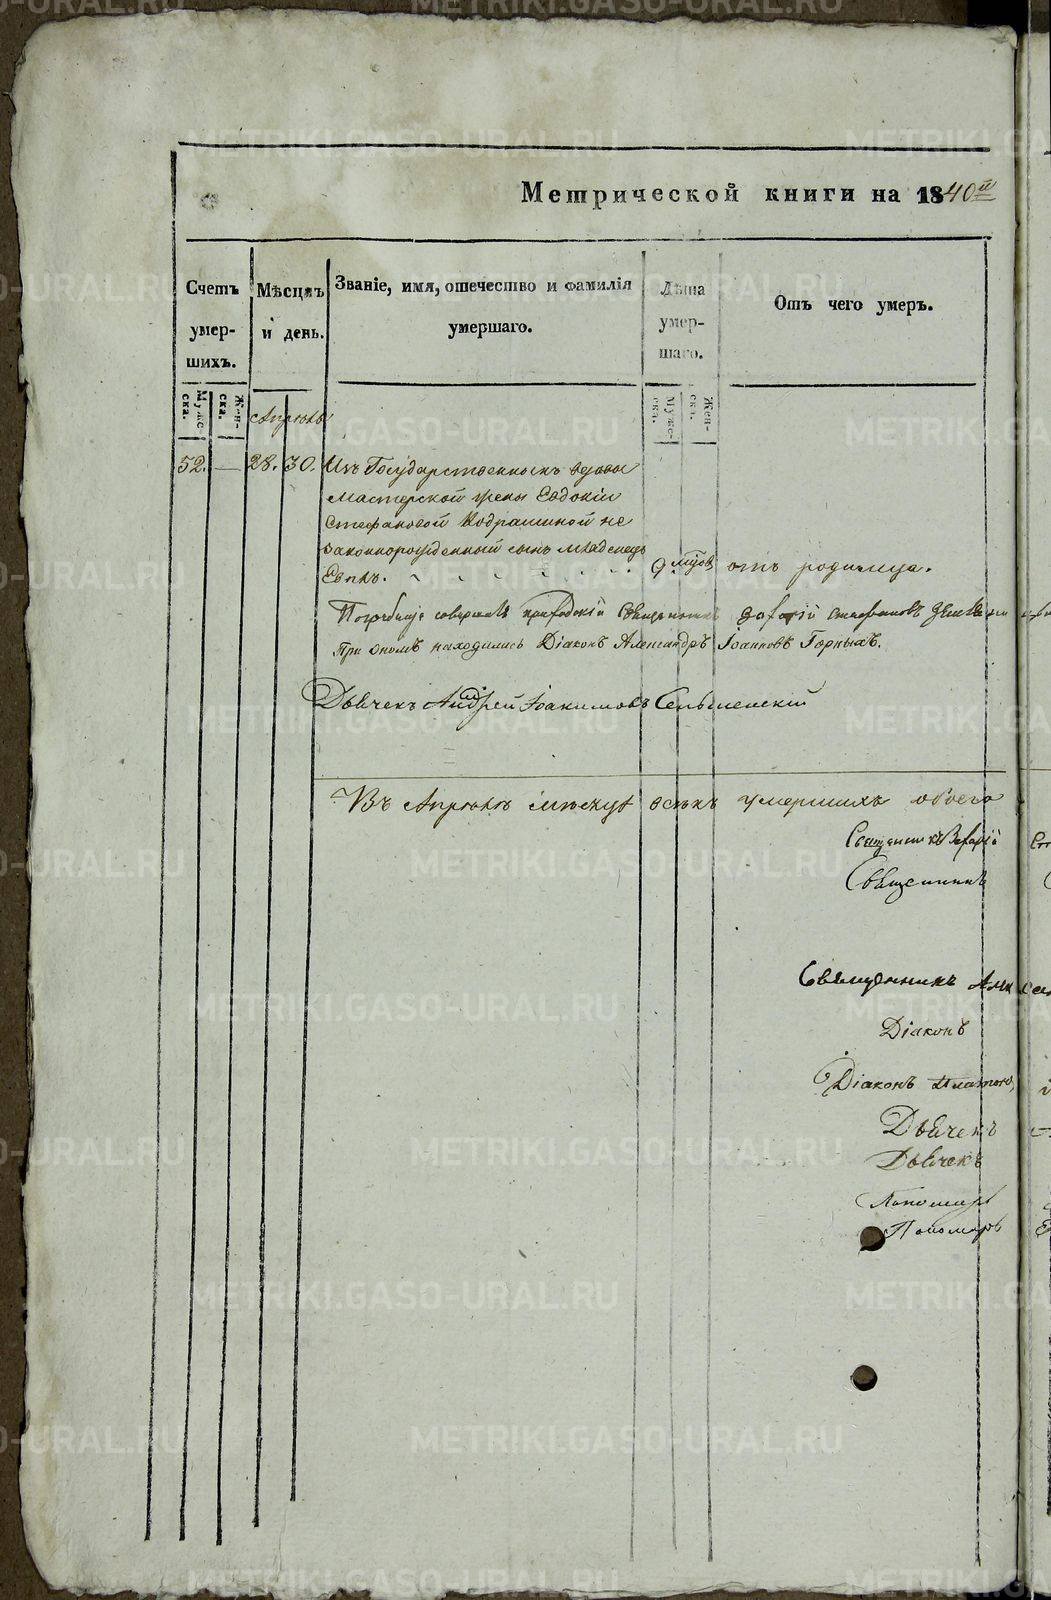 Метрической книги на 1840й
Счетъ умершихъ.
Мужеска.
Женска.
Мѣсяцъ и день.
Званіе, имя, отечество и фамилія умершаго.
Лѣта умершаго.
Мужеска.
Женска.
Отъ чего умеръ.
Апрѣль
52. — 28. 30. Изъ Государственныхъ вдовы
Мастерской жены Евдокіи
Стефановой незаконнорожденный сынъ младенецъ
9 отъ родимца.
Погребеніе совершалъ приходскій Священникъ Захарій Стефановъ
При ономъ находились Діаконъ Александръ Іоанновъ Горныхъ.
Дьячекъ Андрей Іоакимовъ
Въ Апрѣлѣ мѣсяцѣ всѣхъ умершихъ обоего
Священникъ Захарій
Священникъ
Священникъ
Діаконъ
Діаконъ Платонъ
Дьячекъ
Дьячекъ
Пономарь
Пономарь
METRIKI.GASO-URAL.RU